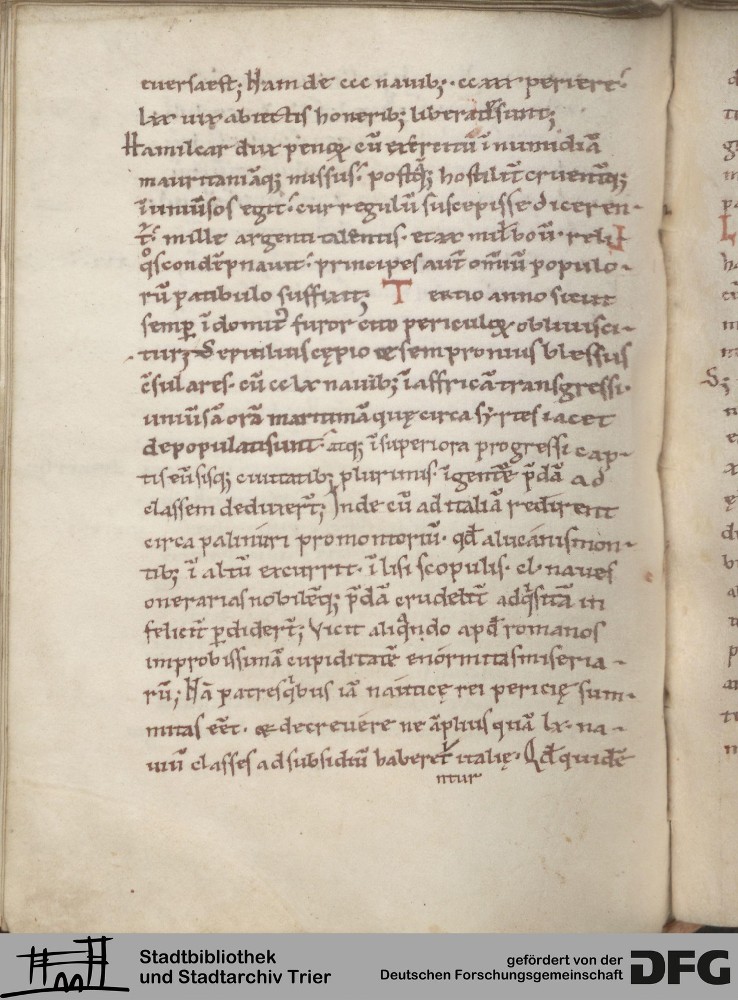 euersa est; Nam de ccc nauib; · cc xx periert̄
lxxx uix abiectis honerib; liberatę sunt;
Hamilcar dux penoꝝ cū exercitu ī numidiā
mauritaniāq; missus· postq̄ hostilit̄ cruent̄q;
ī uniūsos egit· cur regulū suscepisse diceren-
t̄· mille argenti talentis· et xx mil boū· reli
q̊s condēpnauit· principes aut̄ om̄iū populo-
rū patibulo suffixit; Tertio anno sicut
semp̱ īdomit᷒ furor cito periculoꝝ obliuisci-
tur; Seruilius cępio & sempronius blessus
c̄sulares· cū cc lx nauib; ī affricā transgressi·
uniūsā orā maritimā quę circa syrtes iacet
depopulati sunt· atq; ī superiora progressi cap-
tis eūsisq; ciuitatib; plurimis· īgentē p̄dā ad
classem deduxert̄; Inde cū ad italiā redirent
circa palinuri promontoriū· qd̄ a lucanis mon-
tib; ī altū excurrit· īlisi scopulis· cl· naues
onerarias nobilēq; p̄dā crudelit̄ adq̇sitā in
felicit̄ p̱didert̄; Vicit aliq̄ndo apd̄ romanos
improbissimā cupiditatē enormitas miseria-
rū; Nā patres q̇bus iā nauticę rei pericię sum-
mitas eēt· & decreuere ne āplius quā lx· na-
uiū classes ad subsidiū haberet̄ italię· Qd̄ quidē
ntur
Stadtbibliothek
und Stadtarchiv Trier
gefördert von der
Deutschen Forschungsgemeinschaft
DFG